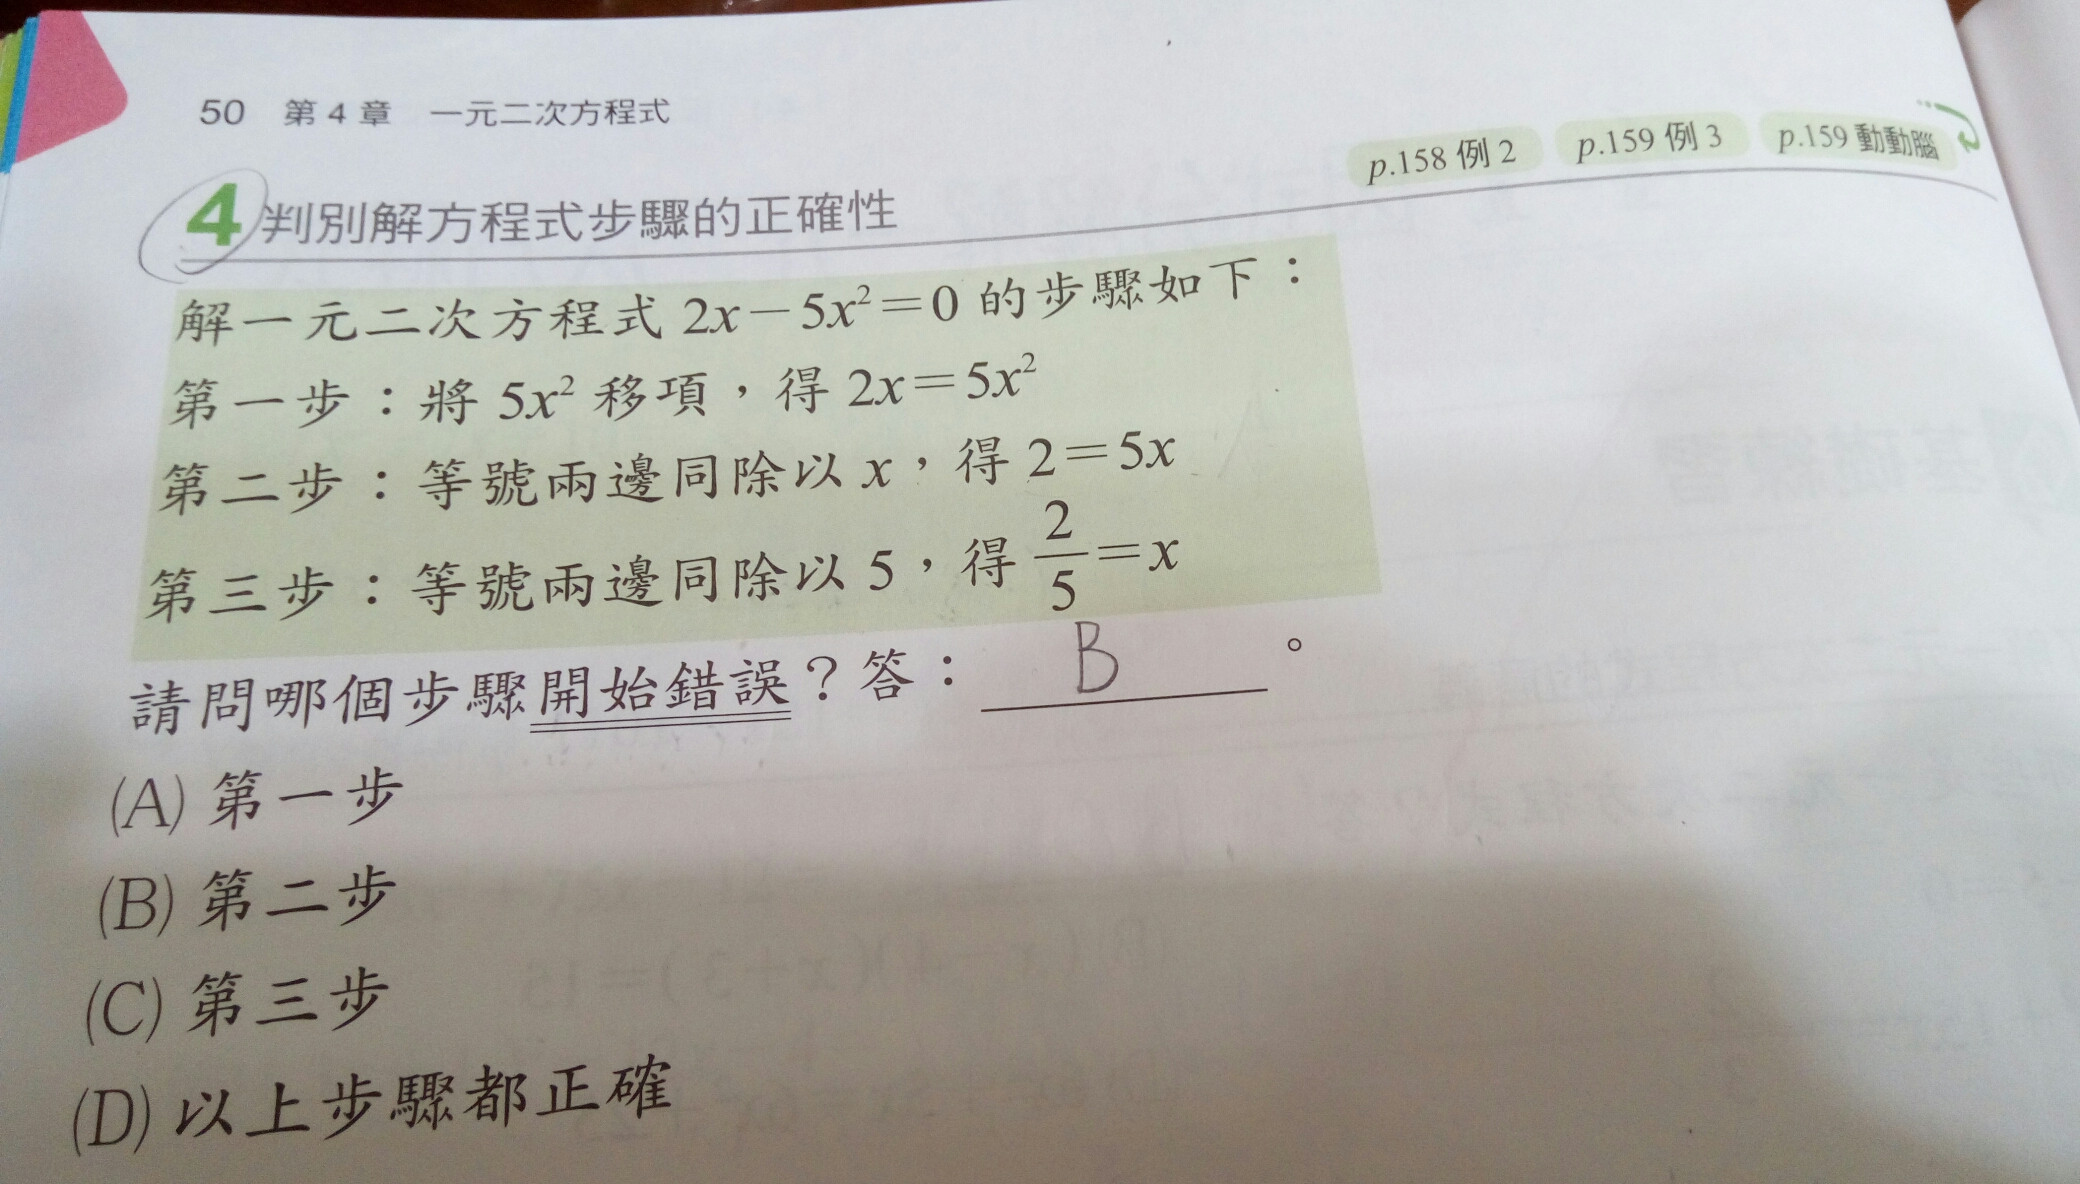 50 第4章 一元二次方程式
p.158 例2 p.159 例3 p.159 動動腦
4 判別解方程式步驟的正確性
解一元二次方程式 2x－5x²＝0 的步驟如下：
第一步：將 5x² 移項，得 2x＝5x²
第二步：等號兩邊同除以 x，得 2＝5x
第三步：等號兩邊同除以 5，得 2/5＝x
請問哪個步驟開始錯誤？答： B 。
(A) 第一步
(B) 第二步
(C) 第三步
(D) 以上步驟都正確